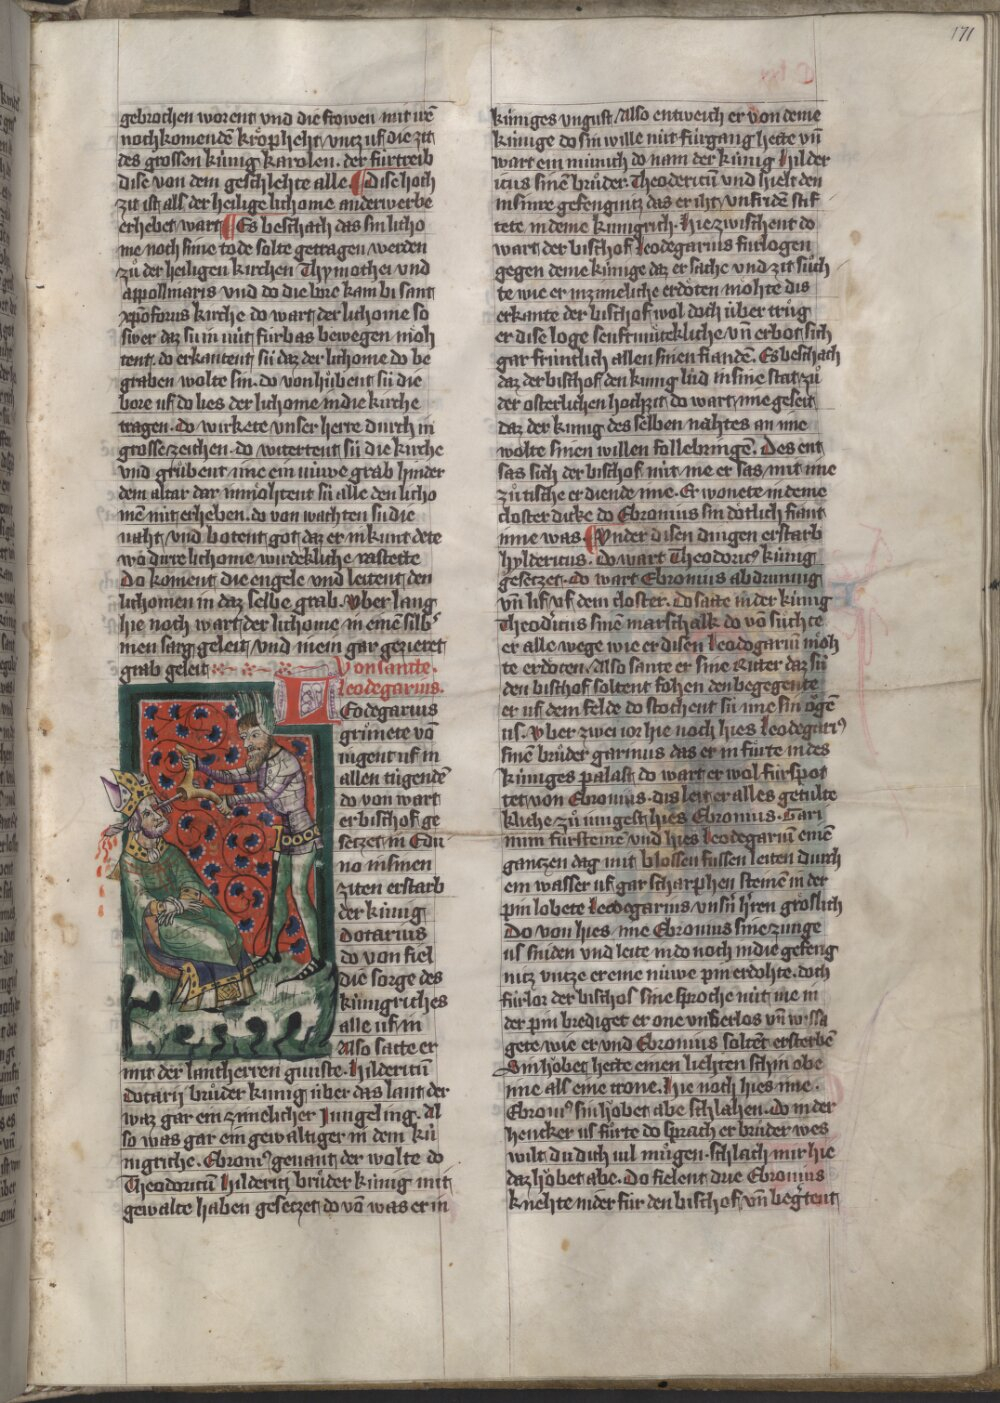 171
gebrochen worent und die frowen mit irē
nochkomendē kroͤpfleht untz uf die zit
des grossen kúnig karolen. der fúrtreib
dise von dem geschlehte alle. Dise hoch
zit ist als der heilige lichome anderwerbe
erhebet wart Es beschach das sin licho
me noch sime tode solte getragen werden
zuͦ der heiligen kirchen Thymothei und
appollinaris und do die bore kam bi sant
xpōforus kirche do wart der lichome so
swer daz sú in nút fúrbas bewegen moͤh
tent. do erkantent sú daz der lichome do be
graben wolte sin. do von huͤbent sú die
bore uf do lies der lichome in die kirche
tragen. do wirkete unser herre durch in
grosse zeichen. do witertent sú die kirche
und gruͤbent ime ein núwe grab hinder
dem altar dar in moͤhtent sú alle den licho
men nút erheben. do von wachten sú die
naht und botent got daz er in kunt dete
wo dirre lichome wirdekliche rastette
Do koment die engele und leitent den
lichomen in daz selbe grab. Uber lang
hie noch wart der lichome in einē silb
inen sarg geleit und in ein gar gezieret
grab geleit Von sancte
Leodegarius.
Leodegarius
gruͤnete vō
iugent uf in
allen tugendē
do von wart
er bischof ge
setzet in Edu
no in sinen
ziten erstarb
der kúnig
Dotarius
do von fiel
die sorge des
kúnigriches
alle uf in
Also satte er
mit der lantherren gunste. Hildericū
dotarij bruͦder kúnig úber das lant der
waz gar ein zimelicher Jungeling. Al
so was gar ein gewaltiger in dem kú
nigriche. Ebroni⁹ genant der wolte do
Theodoricū Hilderici bruͦder kúnig mit
gewalte haben gesetzet do vō was er in
kúniges ungust. Also entweich er von deme
kúnige do sin wille nút fúrgang hette uñ
wart ein múnich do nam der kúnig Hilder
icus sinē bruͦder Theodericū und hielt den
in sinre gefengnitz das er iht unfriden stif
tete in deme kúnigrich. Hie zwischent do
wart der bischof Leodegarius fúrlogen
gegen deme kúnige daz er sache und zit suͦch
te wie er in zimeliche erdoͤten moͤhte dis
erkante der bischof wol doch úber truͦg
er dise loge senftmuͤtekliche uñ erbot sich
gar frúntlich allen sinen fiandē. Es beschach
daz der bischof den kúnig luͦd in sine stat zuͦ
der osterlichen hochzit do wart ime geseit
daz der kúnig des selben nahtes an ime
wolte sinen willen follebringē. Des ent
sas sich der bischof nút me er sas mit ime
zuͦ tische er diende ime. Er wonete in deme
closter dicke do Ebronius sin dotlich fiant
inne was. Under disen dingen erstarb
hyldericus. Do wart Theodoric⁹ kúnig
gesetzet. do wart Ebronius abdrúnnig
uñ lif uf dem closter. Do satte in der kúnig
Theodricus sinē marschalk do vō suͦchte
er alle wege wie er disen Leodegariū moͤh
te erdoten. Also sante er sine Ritter daz sú
den bischof soltent fohen den begegente
er uf dem felde do stochent sú ime sin oͮgē
us. Uber zwei ior hie noch hies Leodegari⁹
sinē bruͦder garinus das er in fúrte in des
kúniges palast do wart er wol fúrspot
tet von Ebronius. dis leit er alles gedulte
kliche zuͦ iungest hies Ebronius. Gari
num fúrsteinē und hies Leodegariū einē
gantzen dag mit blossen fuͤssen leiten durch
ein wasser uf gar scharphen steinē in der
pin lobete Leodegarius unsn hrēn groslich
Do von hies ime Ebronius sine zunge
us sniden und leite in do noch in die gefeng
nitz untze er eine núwe pin erdohte. doch
fúrlor der bischof sine sproche nút me in
der pin brediget er one underlos uñ wissa
gete wie er und Ebronius soltēt ersterbē
Sin hoͮbet hette einen liehten schin obe
ime als eine crone. Hie noch hies ime.
Ebroni⁹ sin hoͮbet abe schlahen. do in der
hencker us fúrte do sprach er bruͦder wes
wilt du dich vil muͤgen. schlach mir hie
daz hoͮbet abe. Do fielent drie Ebronius
knehte nider fúr den bischof uñ begertent